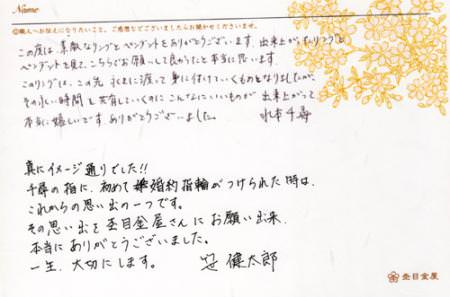 Name
◎職人へお伝えになりたいこと、ご感想などございましたらお聞かせくださいませ。
この度は、素敵なリングとペンダントをありがとうございます。出来上がったリングと
ペンダントを見て、こちらにお願いして良かったと本当に思います。
このリングは、この先 永きに渡って身に付けていくものとなりましたが、
その永い時間を共有していくのにこんなにいいものが出来上がって
本当に嬉しいです。ありがとうございました。
千尋
真にイメージ通りでした!!
千尋の指に、初めて婚約指輪がつけられた時は、
これからの思い出の一つです。
その思い出を杢目金屋さんにお願い出来、
本当にありがとうございました。
一生、大切にします。 笹 健太郎
杢目金屋